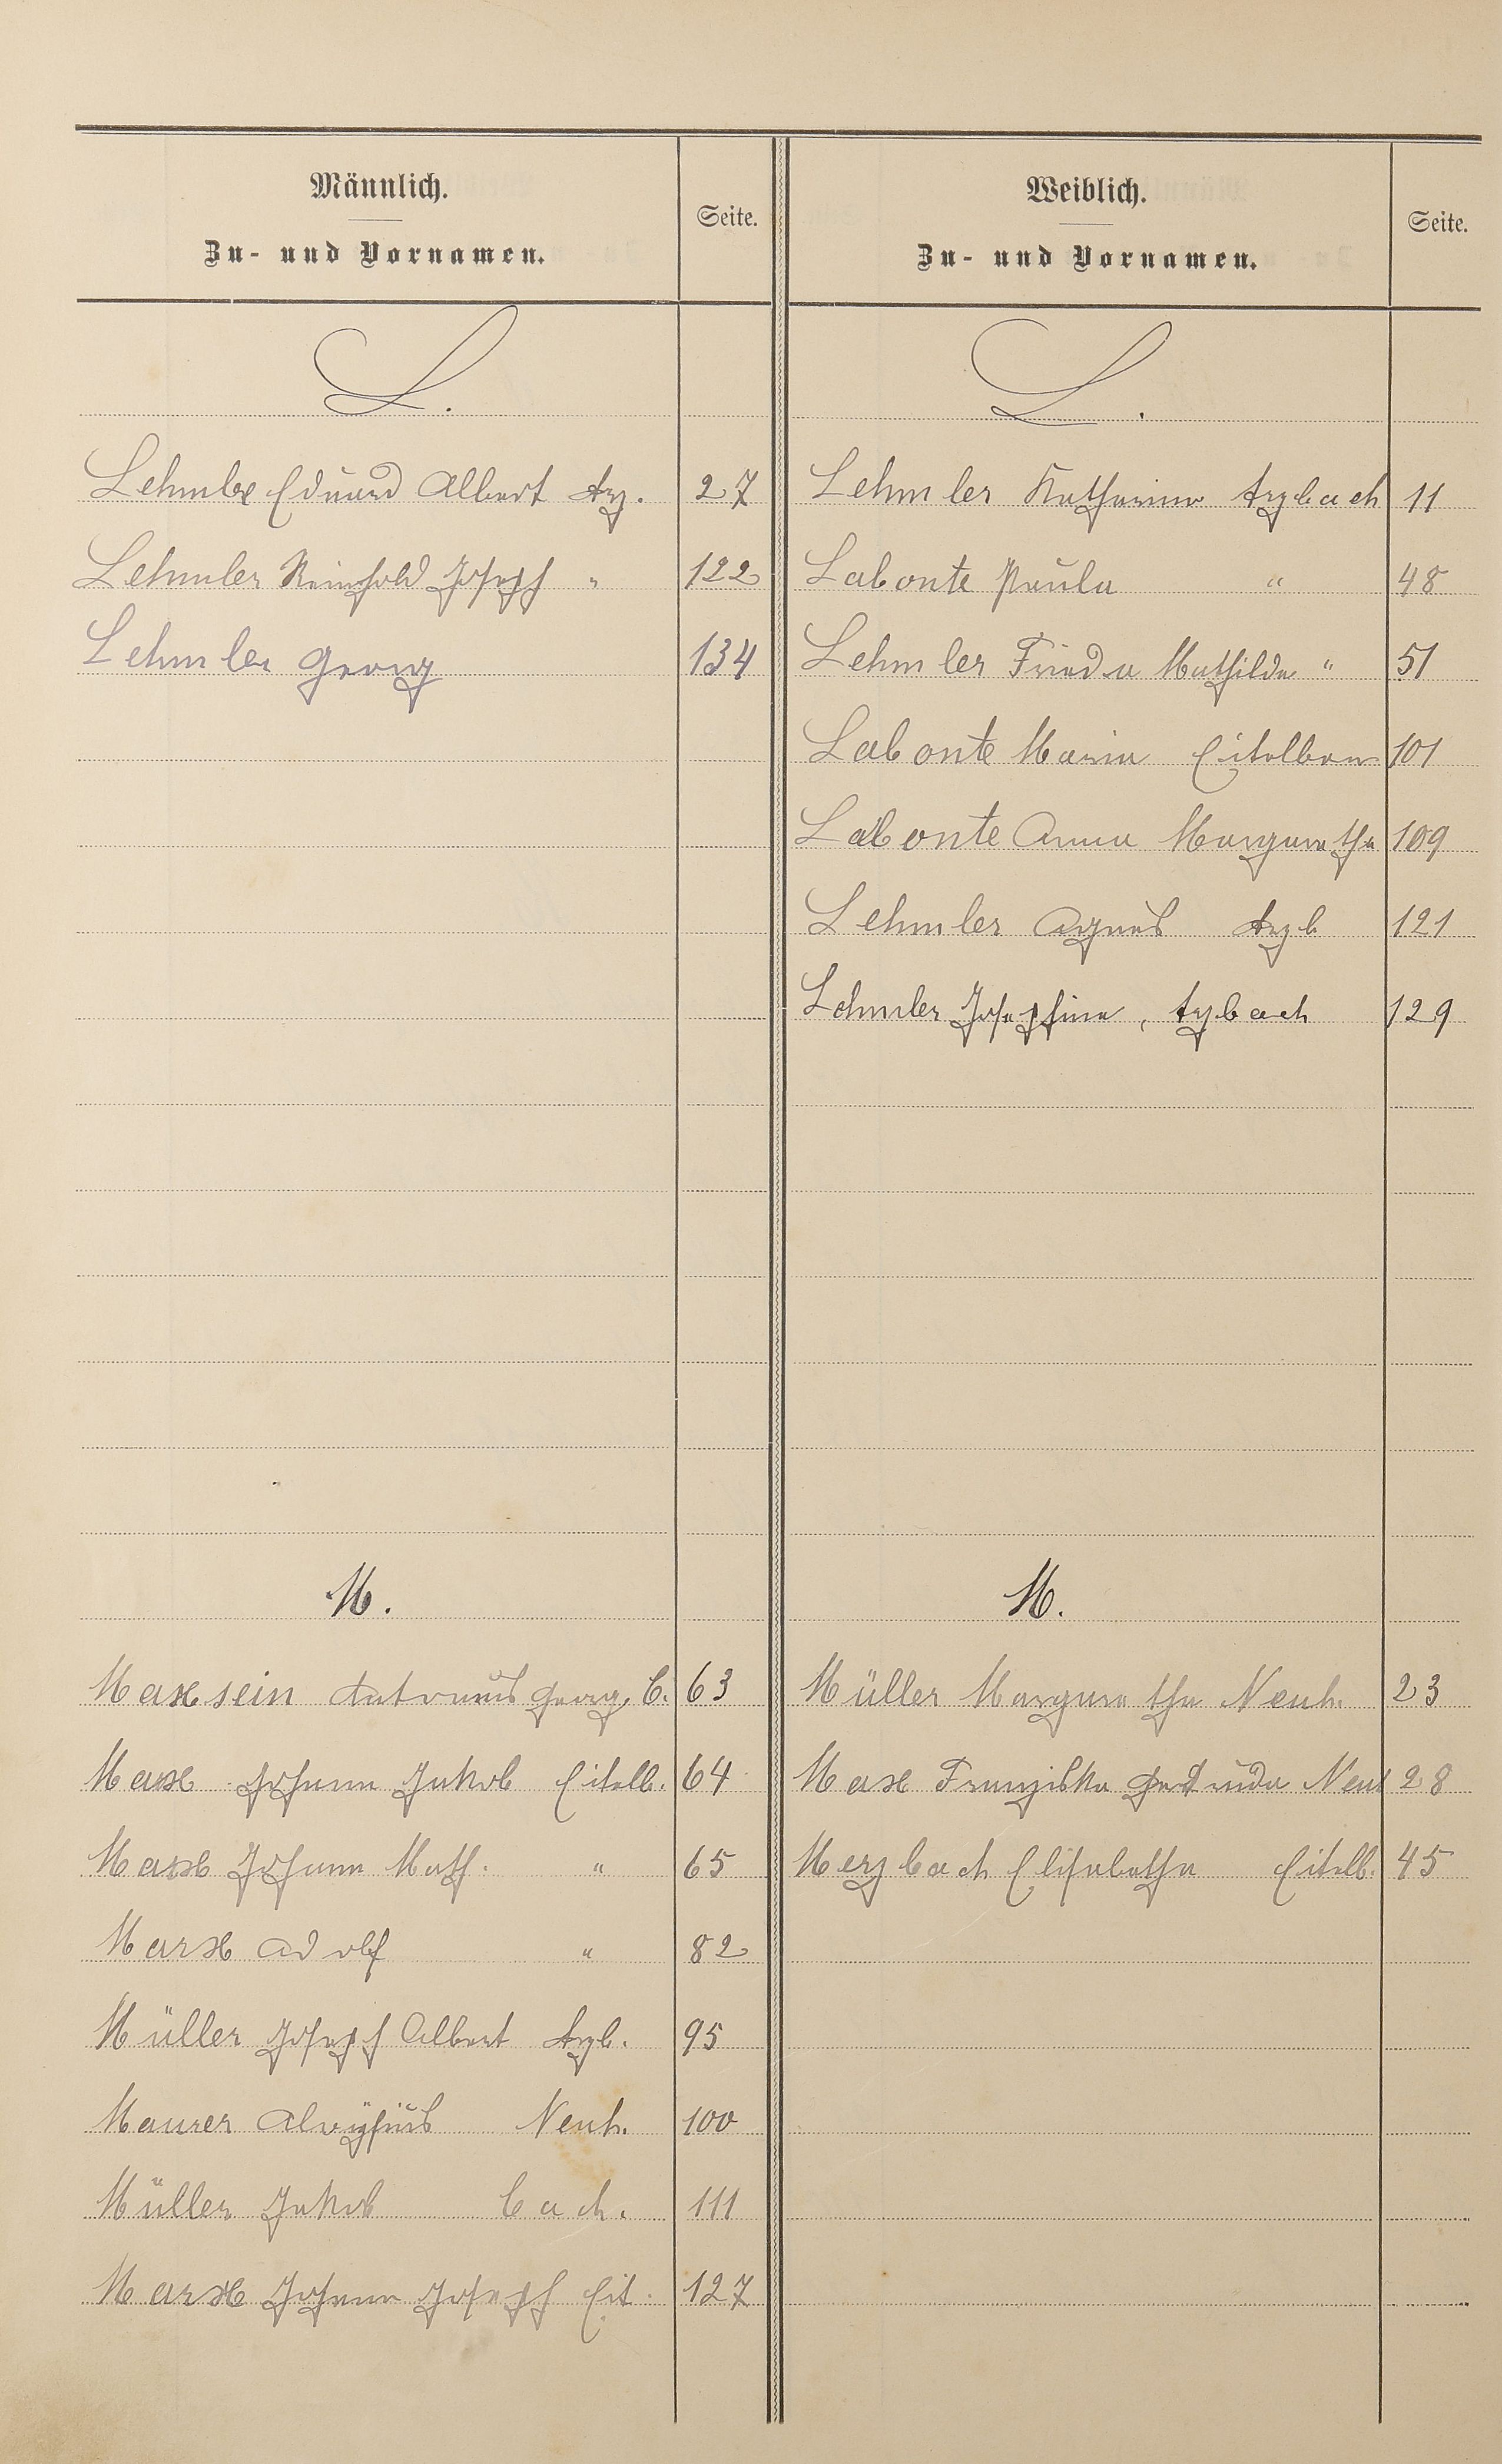 Männlich.
Zu- und Vornamen.
Seite.
L.
Lehmler Eduard Albert Arz. 27
Lehmler Reinhold Joseph " 122
Lehmler Georg 134
M.
Marxsein Antonius Georg C. 63
Marx Johann Jakob Eitelb. 64
Marx Johann Math. " 65
Marx Adolf " 82
Müller Joseph Albert Arzb. 95
Maurer Aloysius Neuh. 100
Müller Jakob Cad. 111
Marx Johann Joseph Eit. 127
Weiblich.
Zu- und Vornamen.
Seite.
L.
Lehmler Katharina Arzbach 11
Labonte Paula " 48
Lehmler Frieda Mathilde " 51
Labonte Maria Eitelborn 101
Labonte Anna Margaretha 109
Lehmler Agnes Arzb 121
Lehmler Josephine, Arzbach 129
M.
Müller Margaretha Neuh. 23
Marx Franziska Gertruda Neuh 28
Merzbach Elisabetha Eitelb. 45